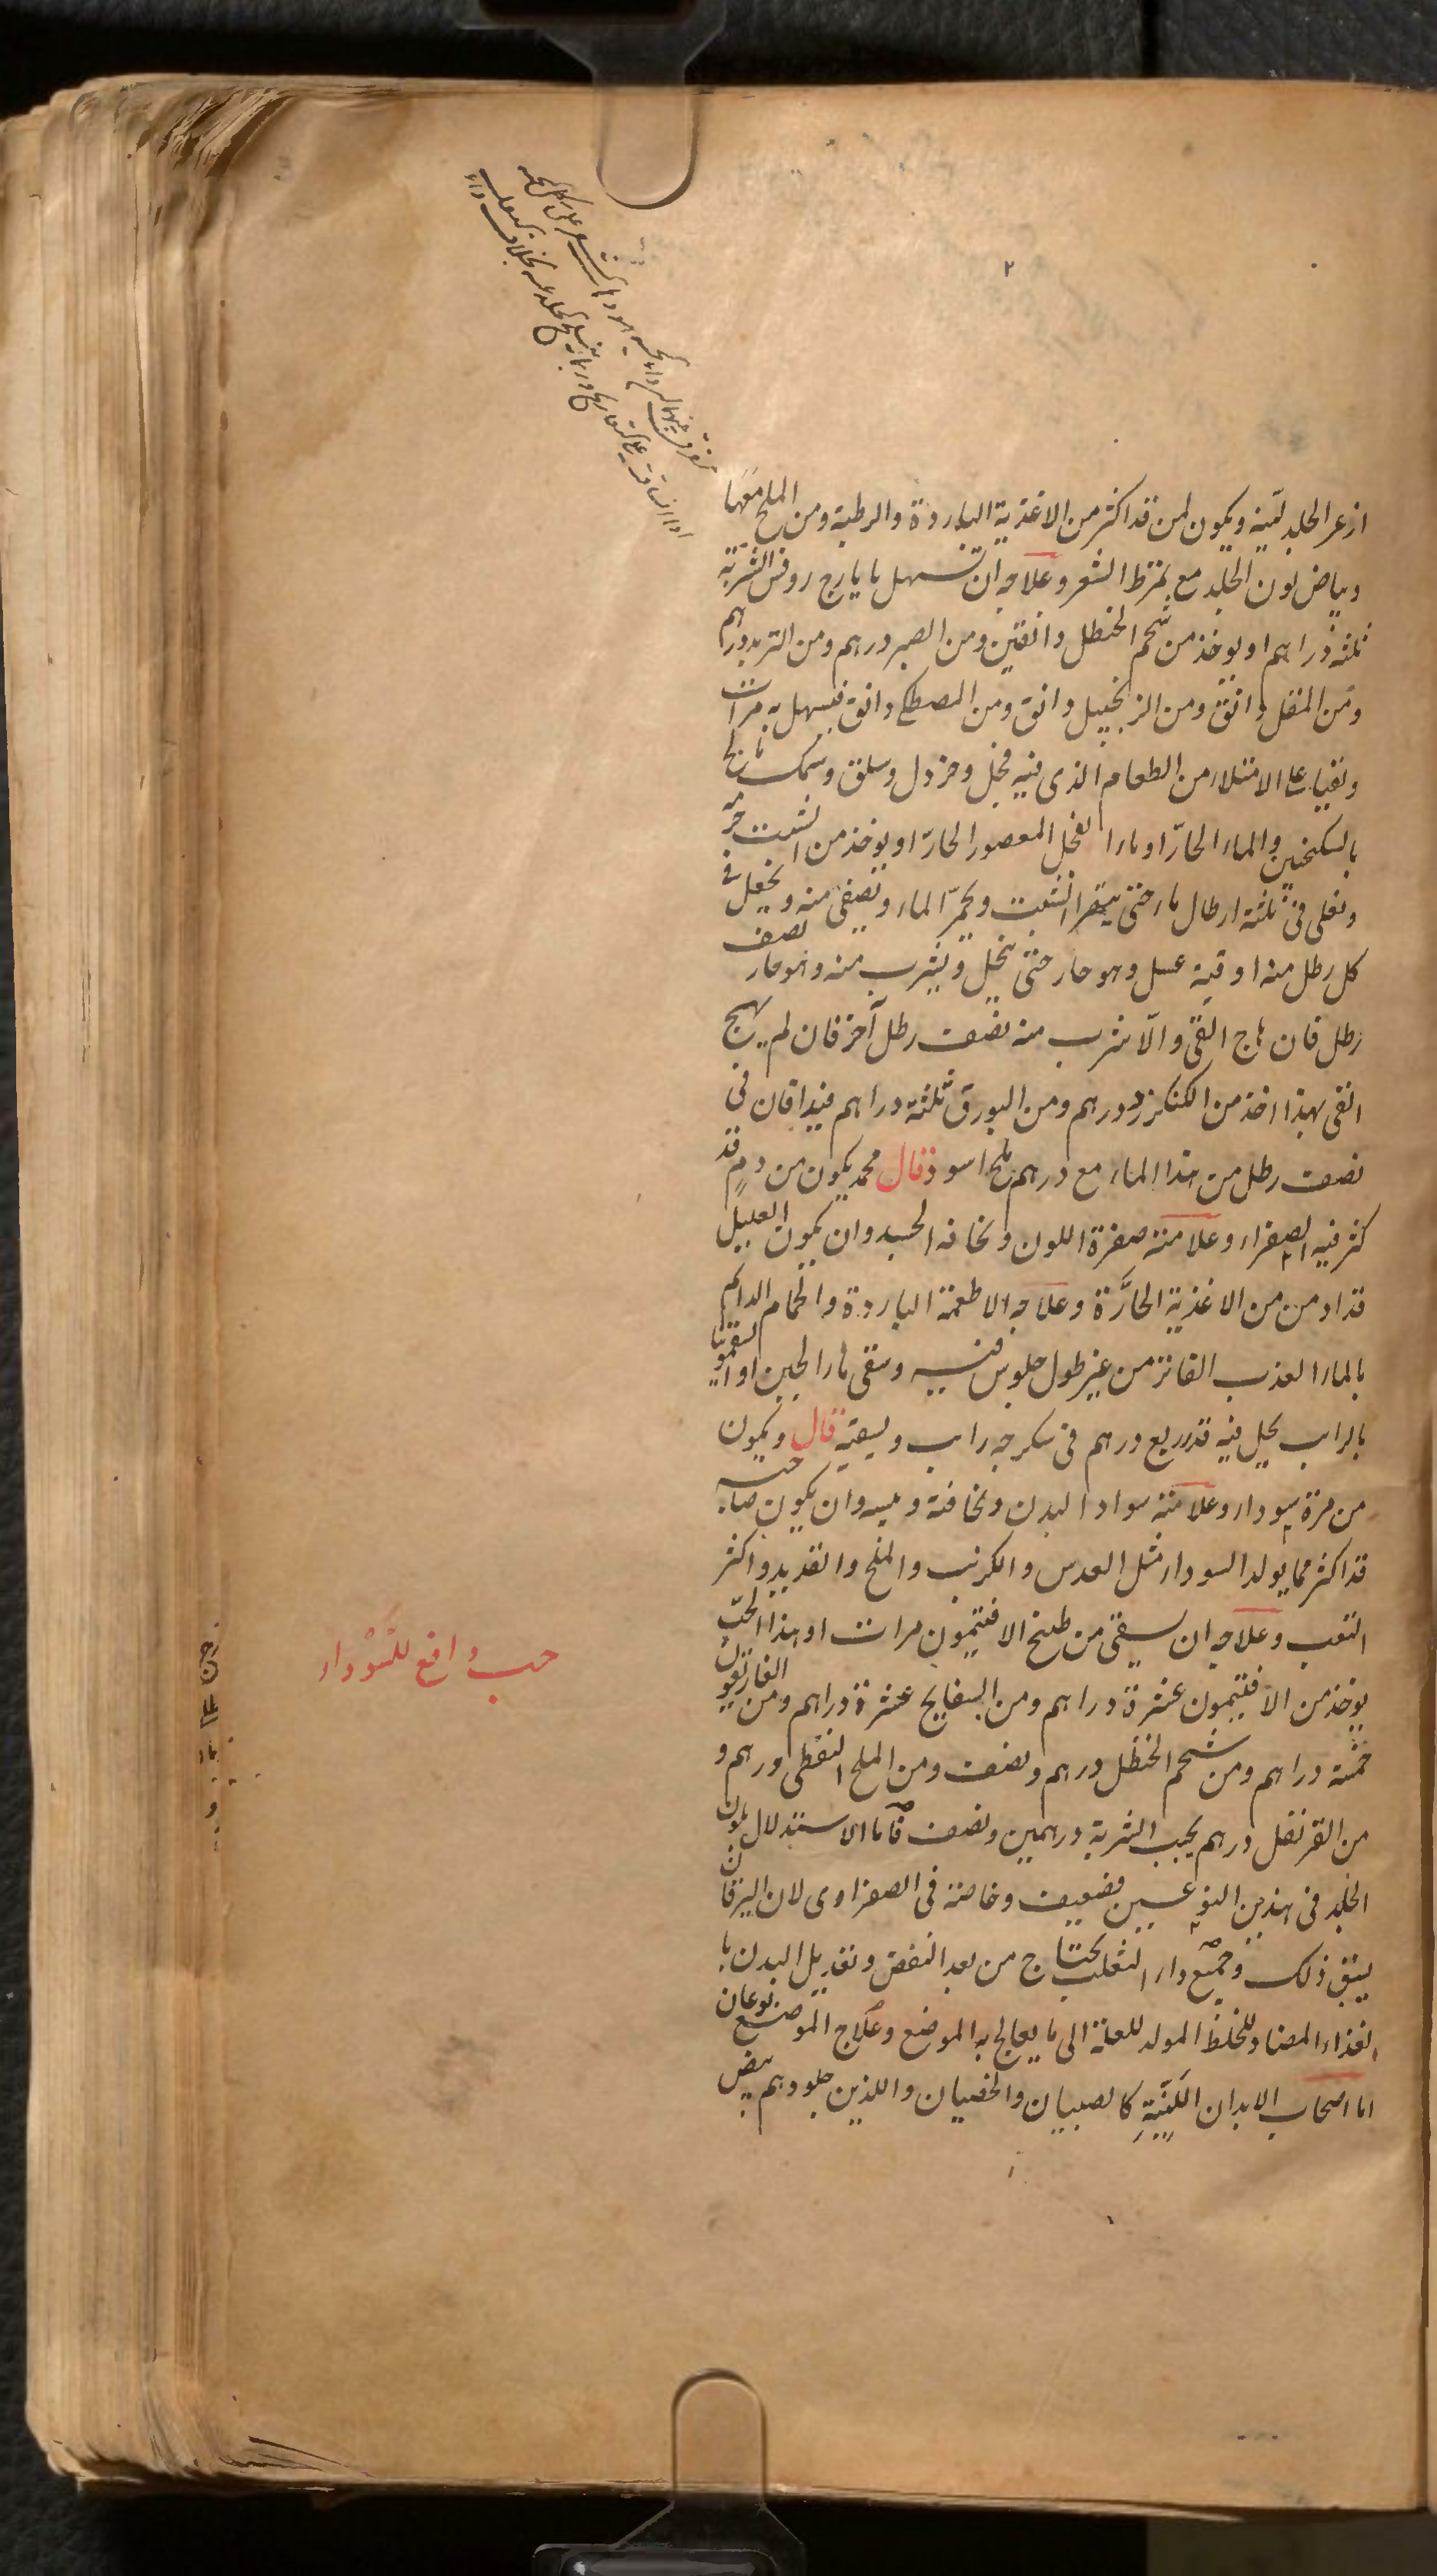 ازعر الجلد لينه ويكون لمن قد اكثر من الاغذية الباردة والرطبة ومن الملح معها
وبياض لون الجلد مع تمرط الشعر وعلاجه ان تسهل بايارج روفس الشربة
ثلثة دراهم او يوخذ من شحم الحنظل دانقين ومن الصبر درهم ومن التربد درهم
ومن المقل دانق ومن الزنجبيل دانق ومن المصطكى دانق فيسهل به مرات
وتقيا على الامتلاء من الطعام الذى فيه فجل وخردل وسلق وسمك مالح
بالسكنجبين والماء الحارّ او ماء الفجل المعصور الحارّ او يوخذ من الشبت حزمه
وتغلى فى ثلثة ارطال ماء حتى يتهرا الشبت ويحمرّ الماء وتصفى منه ويجعل فى
كل رطل منه اوقية عسل وهو حار حتى ينحل ويشرب منه وهو حار نصف
رطل فان هاج القى والّا شرب منه نصف رطل آخر فان لم يهج
القى بهذا اخذ من الكنكرزد درهم ومن البورق ثلثة دراهم فيدافان فى
نصف رطل من هذا الماء مع درهم ملح اسود قال محمد يكون من دم قد
كثر فيه الصفراء وعلامته صفرة اللون ونحافه الجسد وان يكون العليل
قد ادمن من الاغذية الحارَّة وعلاجه الاطعمة الباردة والحمام الدائم
بالماء العذب الفاتر من غير طول جلوس فيه وسقى ماء الجبن او السقمونيا
بالراب يحل فيه قدر ربع درهم فى سكرجه راب ويسقيه قال ويكون
من مرة سوداء وعلامته سواد البدن ونحافته ويبسه وان يكون صاحبه
قد اكثر مما يولد السوداء مثل العدس والكرنب والملح والقديد واكثر
التعب وعلاجه ان يسقى من طبخ الافتيمون مرات او بهذا الحبّ
يوخذ من الافتيمون عشرة دراهم ومن البسفايج عشرة دراهم ومن الغاريقون
خمسة دراهم ومن شحم الحنظل درهم ونصف ومن الملح النفطى درهم و
من القرنفل درهم يحبب الشربة درهمين ونصف فاما الاستدلال بلون
الجلد فى هذين النوعين فضعيف وخاصة فى الصفراوى لان اليرقان
يسبق ذلك وجميع داء الثعلب يحتاج من بعد النفض وتعديل البدن با
لغذاء المضاد للخلط المولد للعلة الى ما يعالج به الموضع وعلاج الموضع نوعان
اما اصحاب الابدان اللينةِ كالصبيان والخصيان واللذين جلودهم بيض
حب دافع للسّوداء
٢